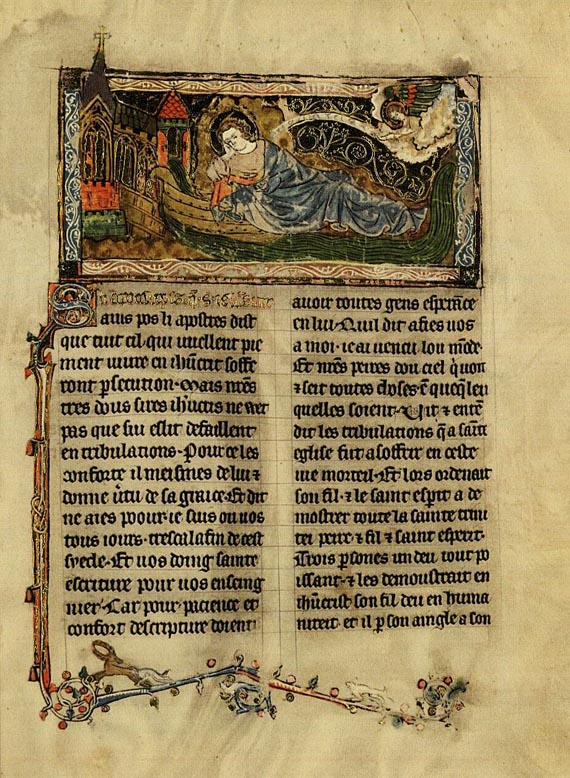 Sains pos li apostres dist
que tuit cil qui uuellent pie
ment uiure en ihucrist soffe
ront pſecution. Mais nr̄es
tres dous sires ih'ucris ne uet
pas que sui eslit defaillent
en tribulations. Pour ce les
conforte il meismes de lui ⁊
donne ūtu de sa grace. Et dit
ne aies poour ie suis ou uos
tous iours. tresca la fin de cest
syecle. Et uos doing sainte
escriture pour uos enseing
nier. Car pour pacience et
confort descripture doient
auoir toutes gens esperāce
en lui. Quil dit afies uos
a moi. ie ai uencu lou mōde.
Et nr̄es peires dou ciel q̇ uoit
⁊ seit toutes choses. ē queq̄ leu
quelles soient. Vit ⁊ entē
dit les tribulations q̄ a saīte
eglise fut a soffrir en ceste
uie morteil. Et lors ordenait
son fil. ⁊ le saint esp̄it a de
mostrer toute la sainte trini
tei peire ⁊ fil ⁊ saint esperit.
Trois p̄sones un deu tout po
issant. ⁊ les demoustrait en
ihūcrist son fil deu en huma
niteit. et il p̄ son aingle a son